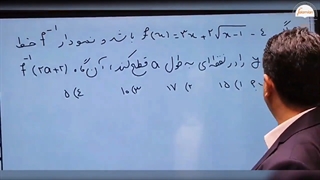 f(x) = ۳x + ۲√x-۱ - ٤ باشد و نمودار f⁻¹ خط
را در نقطه‌ای به طول a قطع کند، آن‌گاه f⁻¹(۲a+۲)
۱) ۱۵ ۲) ۱۷ ۳) ۱۰ ٤) ۵